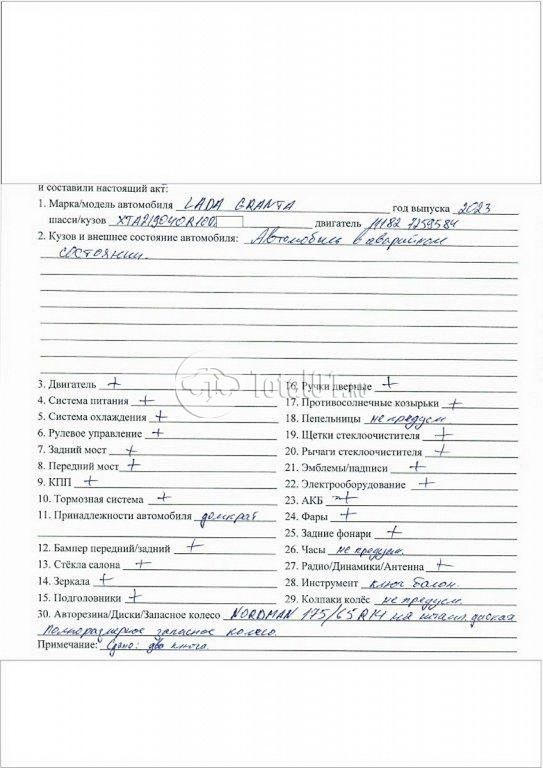 и составили настоящий акт:
1. Марка/модель автомобиля LADA GRANTA год выпуска 2023
шасси/кузов XTA219040R100 двигатель 11182 7259584
2. Кузов и внешнее состояние автомобиля: Автомобиль в аварийном
состоянии.
3. Двигатель + 16. Ручки дверные +
4. Система питания + 17. Противосолнечные козырьки +
5. Система охлаждения + 18. Пепельницы не предусм
6. Рулевое управление + 19. Щетки стеклоочистителя +
7. Задний мост + 20. Рычаги стеклоочистителя +
8. Передний мост + 21. Эмблемы/надписи +
9. КПП + 22. Электрооборудование +
10. Тормозная система + 23. АКБ +
11. Принадлежности автомобиля домкрат 24. Фары +
25. Задние фонари +
12. Бампер передний/задний + 26. Часы не предусм.
13. Стёкла салона + 27. Радио/Динамики/Антенна +
14. Зеркала + 28. Инструмент ключ балон.
15. Подголовники + 29. Колпаки колёс не предусм.
30. Авторезина/Диски/Запасное колесо NORDMAN 175/65 R14 на штамп. дисках
Полноразмерное запасное колесо.
Примечание: Сдано: два ключа.
Total01.ru